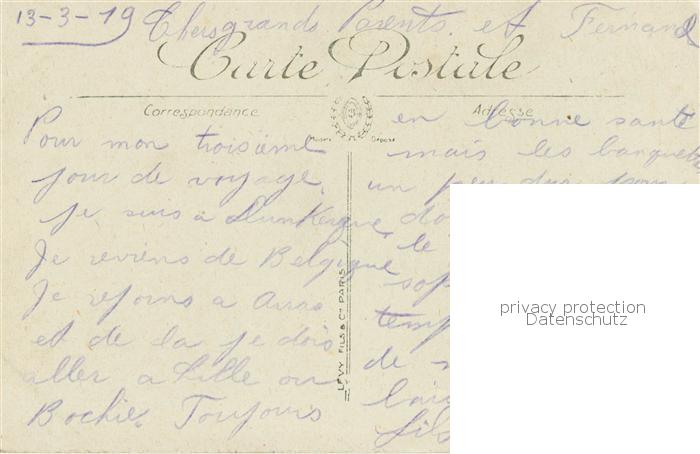 13-3-19 Chers grands Parents et Fernand
Carte Postale
Correspondance
Adresse
Pour mon troisième
jour de voyage
je suis à Dunkerque
Je reviens de Belgique
Je rejoins a Arras
et de la je dois
aller a Lille ou
Bochie. Toujours
en bonne santé
mais les banquettes
un peu dur pour
le
de
fils
LEVY FILS & Cie PARIS
privacy protection
Datenschutz